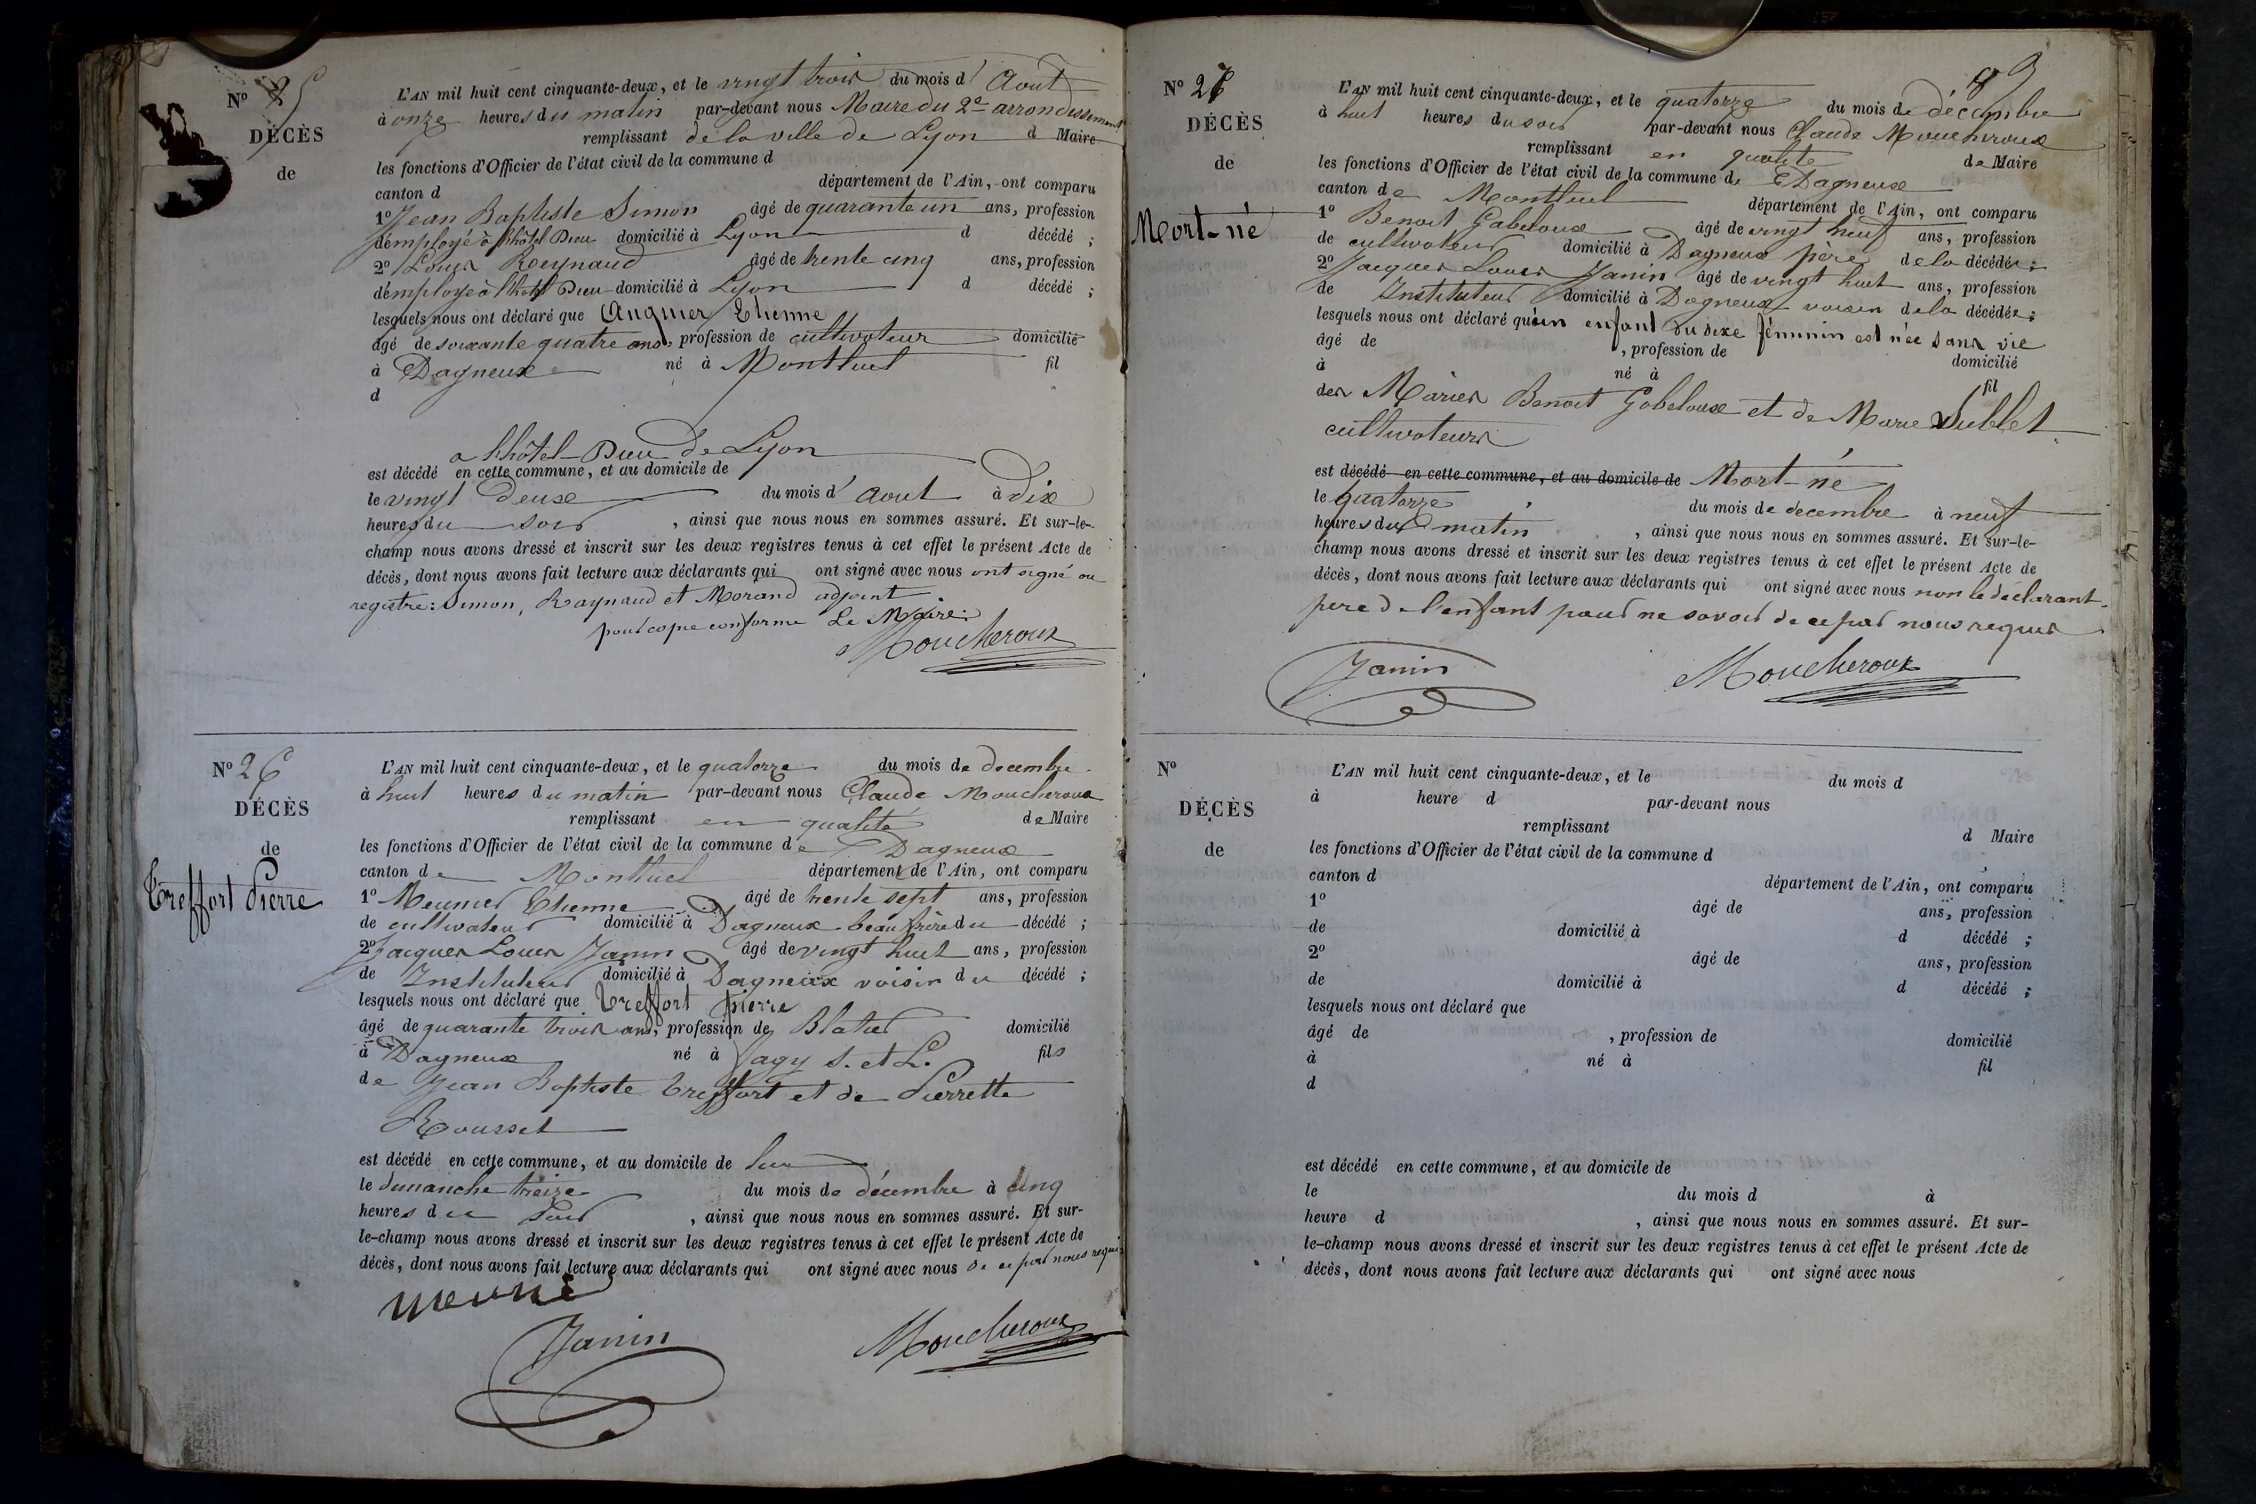 N° 25
DÉCÈS
de
L'AN mil huit cent cinquante-deux, et le vingt trois du mois d' Aout
à onze heures du matin par-devant nous Maire du 2e arrondissement
remplissant de la ville de Lyon d Maire
les fonctions d'Officier de l'état civil de la commune d
canton d département de l'Ain, ont comparu
1° Jean Baptiste Simon âgé de quarante un ans, profession
d'employé à l'hôtel Dieu domicilié à Lyon d décédé ;
2° Louis Reynaud âgé de trente cinq ans, profession
d'employé à l'hotel Dieu domicilié à Lyon d décédé ;
lesquels nous ont déclaré que Augnier Etienne
âgé de soixante quatre ans, profession de cultivateur domicilié
à Dagneux né à Montluel fil
d
a l'hôtel-Dieu de Lyon
est décédé en cette commune, et au domicile de
le vingt deux du mois d' aout à dix
heures du soir , ainsi que nous nous en sommes assuré. Et sur-le-
champ nous avons dressé et inscrit sur les deux registres tenus à cet effet le présent Acte de
décès, dont nous avons fait lecture aux déclarants qui ont signé avec nous ont signé au
registre: Simon, Raynaud et Morand adjoint
pour copie conforme Le Maire:
Moucheroux
N° 26
DÉCÈS
de
Treffort Pierre
L'AN mil huit cent cinquante-deux, et le quatorze du mois de decembre
à huit heures du matin par-devant nous Claude Moucheroux
remplissant en qualité de Maire
les fonctions d'Officier de l'état civil de la commune de Dagneux
canton de Montluel département de l'Ain, ont comparu
1° Meunier Etienne âgé de trente sept ans, profession
de cultivateur domicilié à Dagneux beau frère du décédé ;
2° Jacques Louis Janin âgé de vingt huit ans, profession
de Instituteur domicilié à Dagneux voisin du décédé ;
lesquels nous ont déclaré que Treffort pierre
âgé de quarante trois ans, profession de Blatier domicilié
à Dagneux né à Sagy S. et L. fils
de Jean Baptiste Treffort et de Pierrette
Rousset
est décédé en cette commune, et au domicile de lui
le dimanche treize du mois de décembre à cinq
heures du soir , ainsi que nous nous en sommes assuré. Et sur-
le-champ nous avons dressé et inscrit sur les deux registres tenus à cet effet le présent Acte de
décès, dont nous avons fait lecture aux déclarants qui ont signé avec nous de ce par nous requis
Janin Moucheroux
N° 27
DÉCÈS
de
Mort-né
L'AN mil huit cent cinquante-deux, et le quatorze du mois de décembre
à huit heures du soir par-devant nous Claude Moucheroux
remplissant en qualité de Maire
les fonctions d'Officier de l'état civil de la commune de Dagneux
canton de Montluel département de l'Ain, ont comparu
1° Benoit Gabeloux âgé de vingt neuf ans, profession
de cultivateur domicilié à Dagneux père de la décédée ;
2° Jacques Louis Janin âgé de vingt huit ans, profession
de Instituteur domicilié à Dagneux voisin de la décédée ;
lesquels nous ont déclaré qu'un enfant du sexe féminin est née sans vie
âgé de , profession de domicilié
à né à fil
des Mariés Benoit Gabeloux et de Marie Sublet
cultivateurs
est décédé en cette commune, et au domicile de Mort-né
le quatorze du mois de decembre à neuf
heures du matin , ainsi que nous nous en sommes assuré. Et sur-le-
champ nous avons dressé et inscrit sur les deux registres tenus à cet effet le présent Acte de
décès, dont nous avons fait lecture aux déclarants qui ont signé avec nous non le déclarant
père de l'enfant pour ne savoir de ce par nous requis
Janin Moucheroux
N°
DÉCÈS
de
L'AN mil huit cent cinquante-deux, et le du mois d
à heure d par-devant nous
remplissant d Maire
les fonctions d'Officier de l'état civil de la commune d
canton d département de l'Ain, ont comparu
1° âgé de ans, profession
de domicilié à d décédé ;
2° âgé de ans, profession
de domicilié à d décédé ;
lesquels nous ont déclaré que
âgé de , profession de domicilié
à né à fil
d
est décédé en cette commune, et au domicile de
le du mois d à
heure d , ainsi que nous nous en sommes assuré. Et sur-
le-champ nous avons dressé et inscrit sur les deux registres tenus à cet effet le présent Acte de
décès, dont nous avons fait lecture aux déclarants qui ont signé avec nous